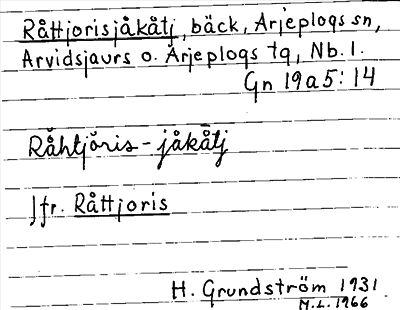 Råttjorisjåkåtj, bäck, Arjeplogs sn,
Arvidsjaurs o. Arjeplogs tg, Nb. l.
Gn 19a5:14
Råhtjåris-jåkåtj
Jfr. Råttjoris
H. Grundström 1931
M.L. 1966